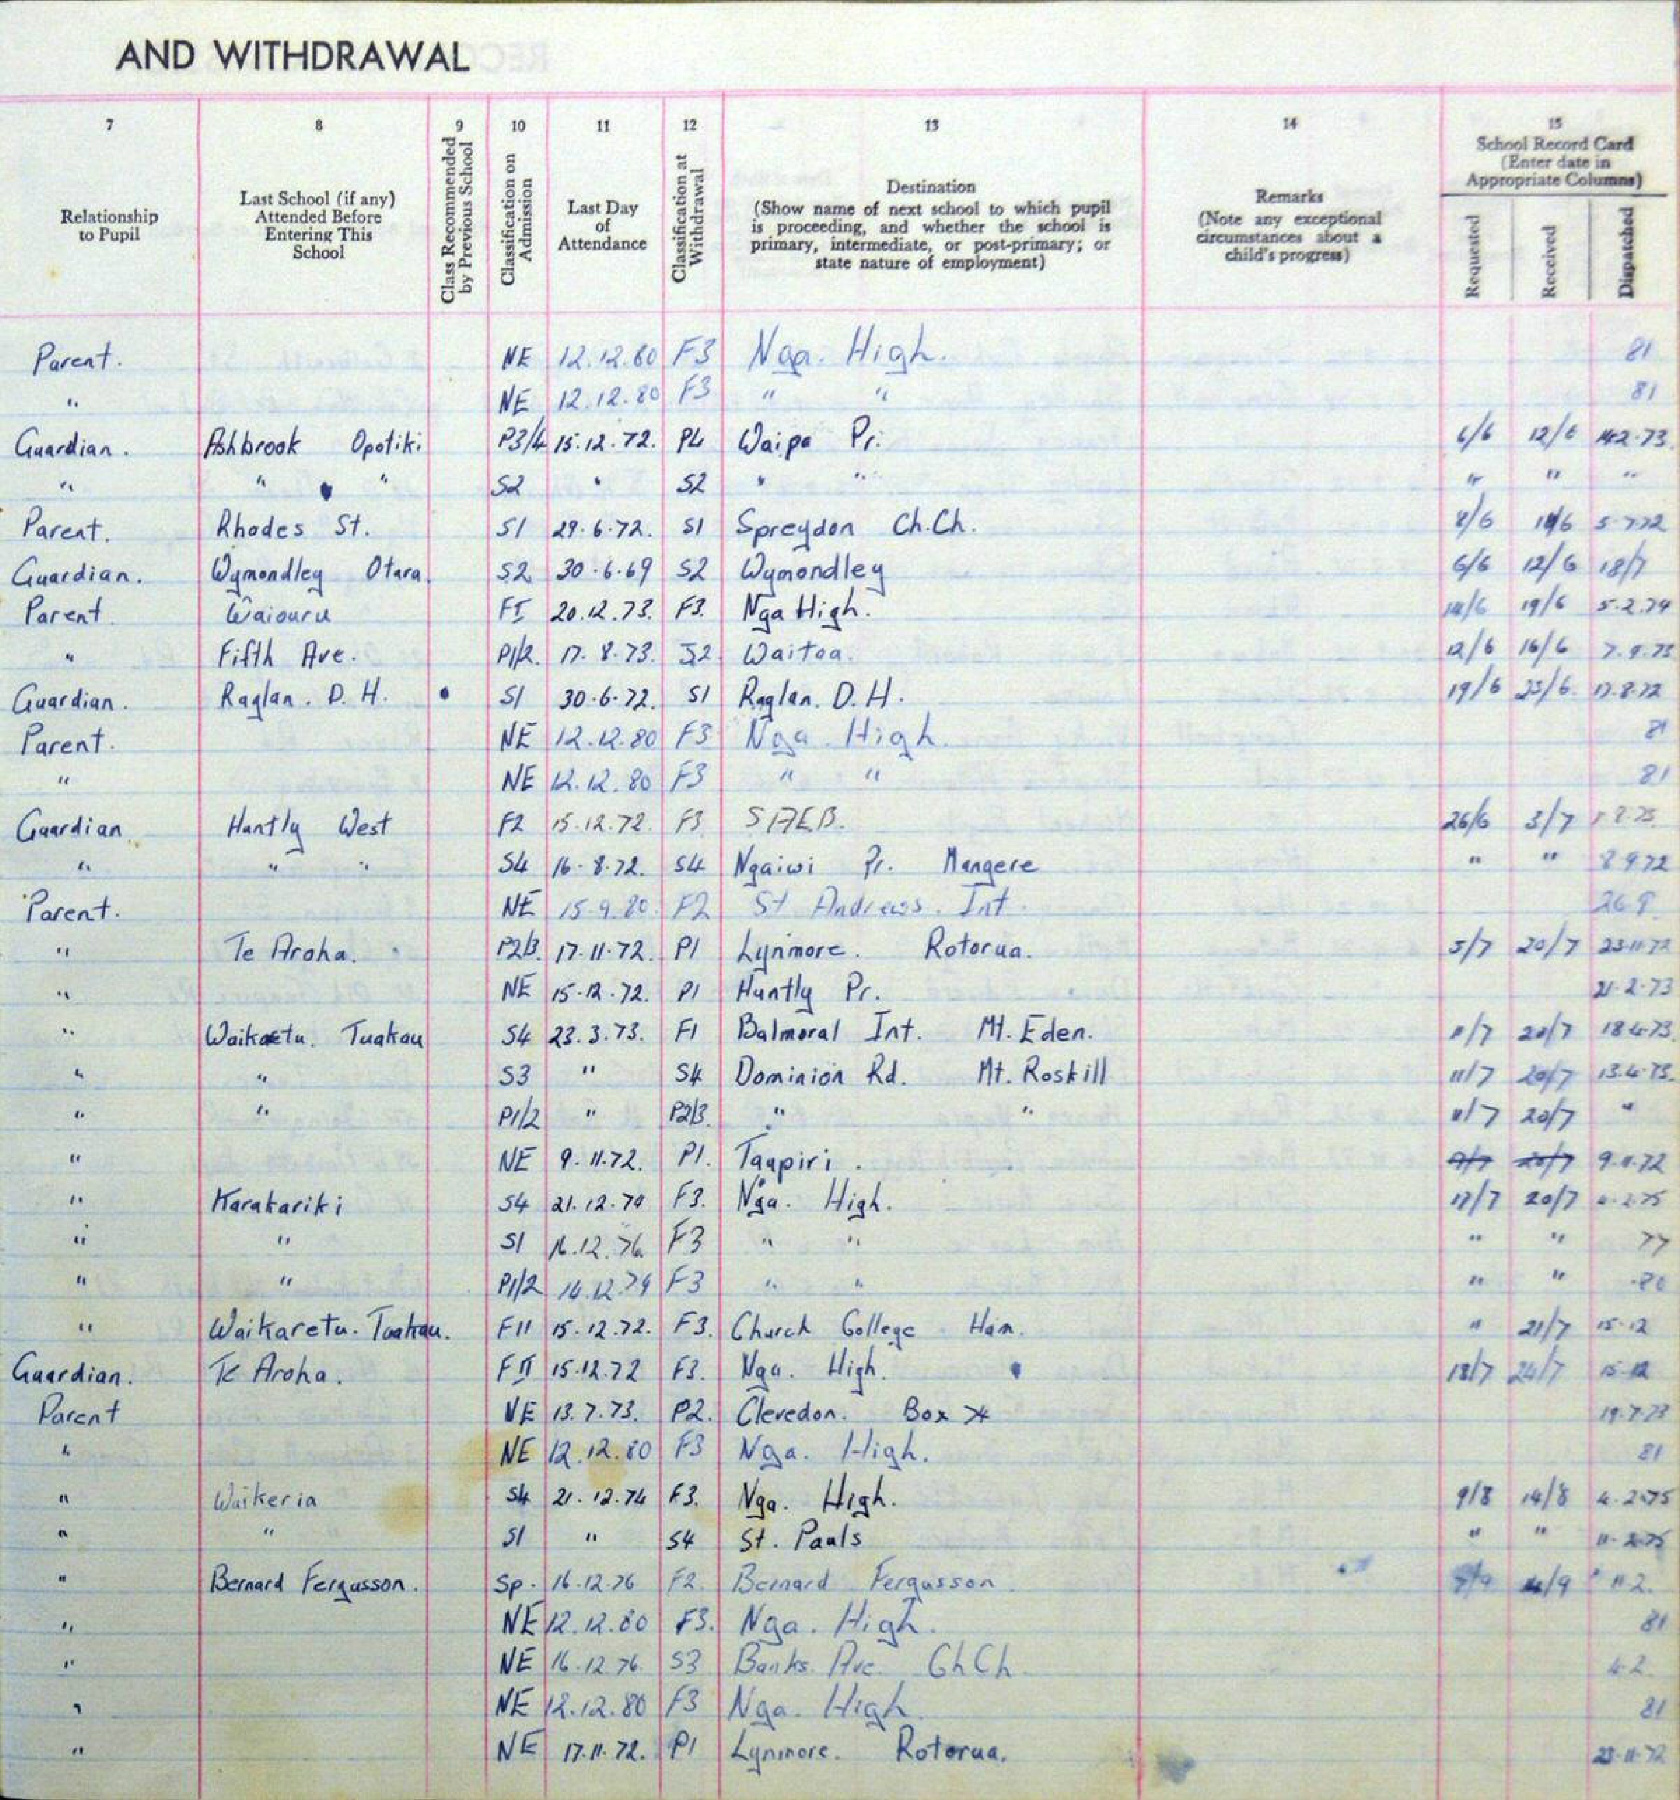 AND WITHDRAWAL
7 8 9 10 11 12 13 14 15
Relationship to Pupil
Last School (if any) Attended Before Entering This School
Class Recommended by Previous School
Classification on Admission
Last Day of Attendance
Classification at Withdrawal
Destination (Show name of next school to which pupil is proceeding, and whether the school is primary, intermediate, or post-primary; or state nature of employment)
Remarks (Note any exceptional circumstances about a child's progress)
School Record Card (Enter date in Appropriate Columns)
Requested Received Dispatched
Parent. NE 12.12.80 F3 Nga. High. 81
" NE 12.12.80 F3 " " 81
Guardian. Ashbrook Opotiki P3/4 15.12.72. P4 Waipa Pr. 6/6 12/6 14.2.73
" " " S2 " S2 " " " " "
Parent. Rhodes St. S1 29.6.72. S1 Spreydon Ch.Ch. 8/6 5.7.72
Guardian. Wymondley Otara S2 30.6.69 S2 Wymondley 6/6 12/6 18/7
Parent Waiouru FI 20.12.73. F3. Nga High. 14/6 19/6 5.2.74
" Fifth Ave. P1/2. 17.8.73. S2 Waitoa. 12/6 16/6 7.9.73
Guardian. Raglan. D.H. S1 30.6.72. S1 Raglan. D.H. 19/6 23/6 17.8.72
Parent. NE 12.12.80 F3 Nga. High. 81
" NE 12.12.80 F3 " " 81
Guardian Huntly West F2 15.12.72. F3 26/6 3/7
" " " S4 16.8.72. S4 Ngaiwi Pr. Mangere " " 8.9.72
Parent. NE 15.9.80. F2 St Andrews. Int. 26.9
" Te Aroha. P2/3. 17.11.72. P1 Lynmore. Rotorua. 5/7 20/7 23.11.72
" NE 15.12.72. P1 Huntly Pr. 21.2.73
" Waikaetu. Tuakau S4 23.3.73. F1 Balmoral Int. Mt. Eden. 11/7 20/7 18.4.73
" " S3 " S4 Dominion Rd. Mt. Roskill 11/7 20/7 13.4.73.
" " P1/2 " P2/3. " " 11/7 20/7 "
" NE 9.11.72. P1. Taupiri. 20/7 9.11.72
" Karakariki S4 21.12.74 F3. Nga. High. 17/7 20/7 4.2.75
" " S1 16.12.76 F3 " " " " 77
" " P1/2 14.12.79 F3 " " " " 80
" Waikaretu. Tuakau. F11 15.12.72. F3. Church College Ham. " 21/7 15.12
Guardian. Te Aroha. FII 15.12.72 F3. Nga. High. 18/7 24/7 15.12
Parent NE 13.7.73. P2. Clevedon. Box 19.7.73
" NE 12.12.80 F3 Nga. High. 81
" Waikeria S4 21.12.74 F3. Nga. High. 9/8 14/8 4.2.75
" " S1 " S4 St. Pauls " " 11.2.75
" Bernard Fergusson. Sp. 16.12.76 F2. Bernard Fergusson. 11.2.
" NE 12.12.80 F3. Nga. High. 81
" NE 16.12.76 S3 Banks Ave. ChCh. 4.2
" NE 12.12.80 F3 Nga. High. 81
" NE 17.11.72. P1 Lynmore. Rotorua. 23.11.72